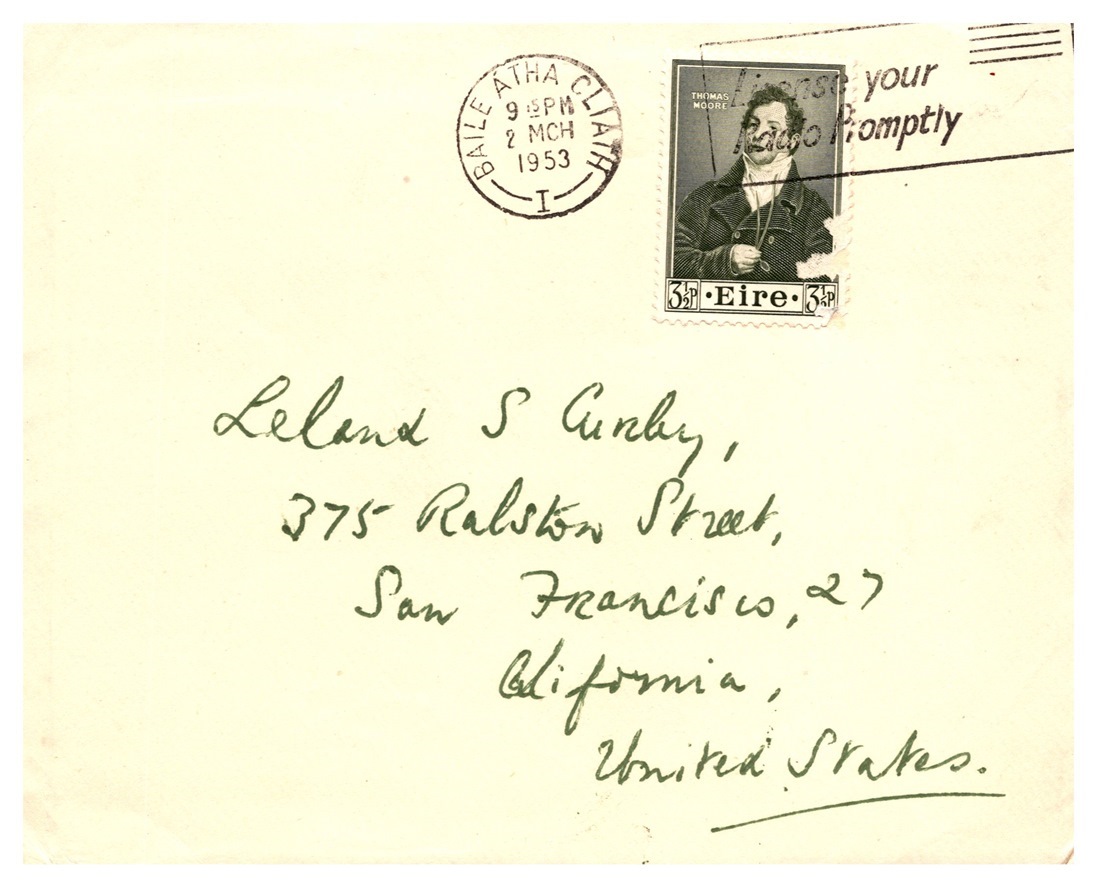 BAILE ÁTHA CLIATH
9 15PM
2 MCH
1953
I
License your
Radio Promptly
THOMAS
MOORE
3½P · Eire · 3½P
Leland S Curby,
375 Ralston Street,
San Francisco, 27
California,
United States.